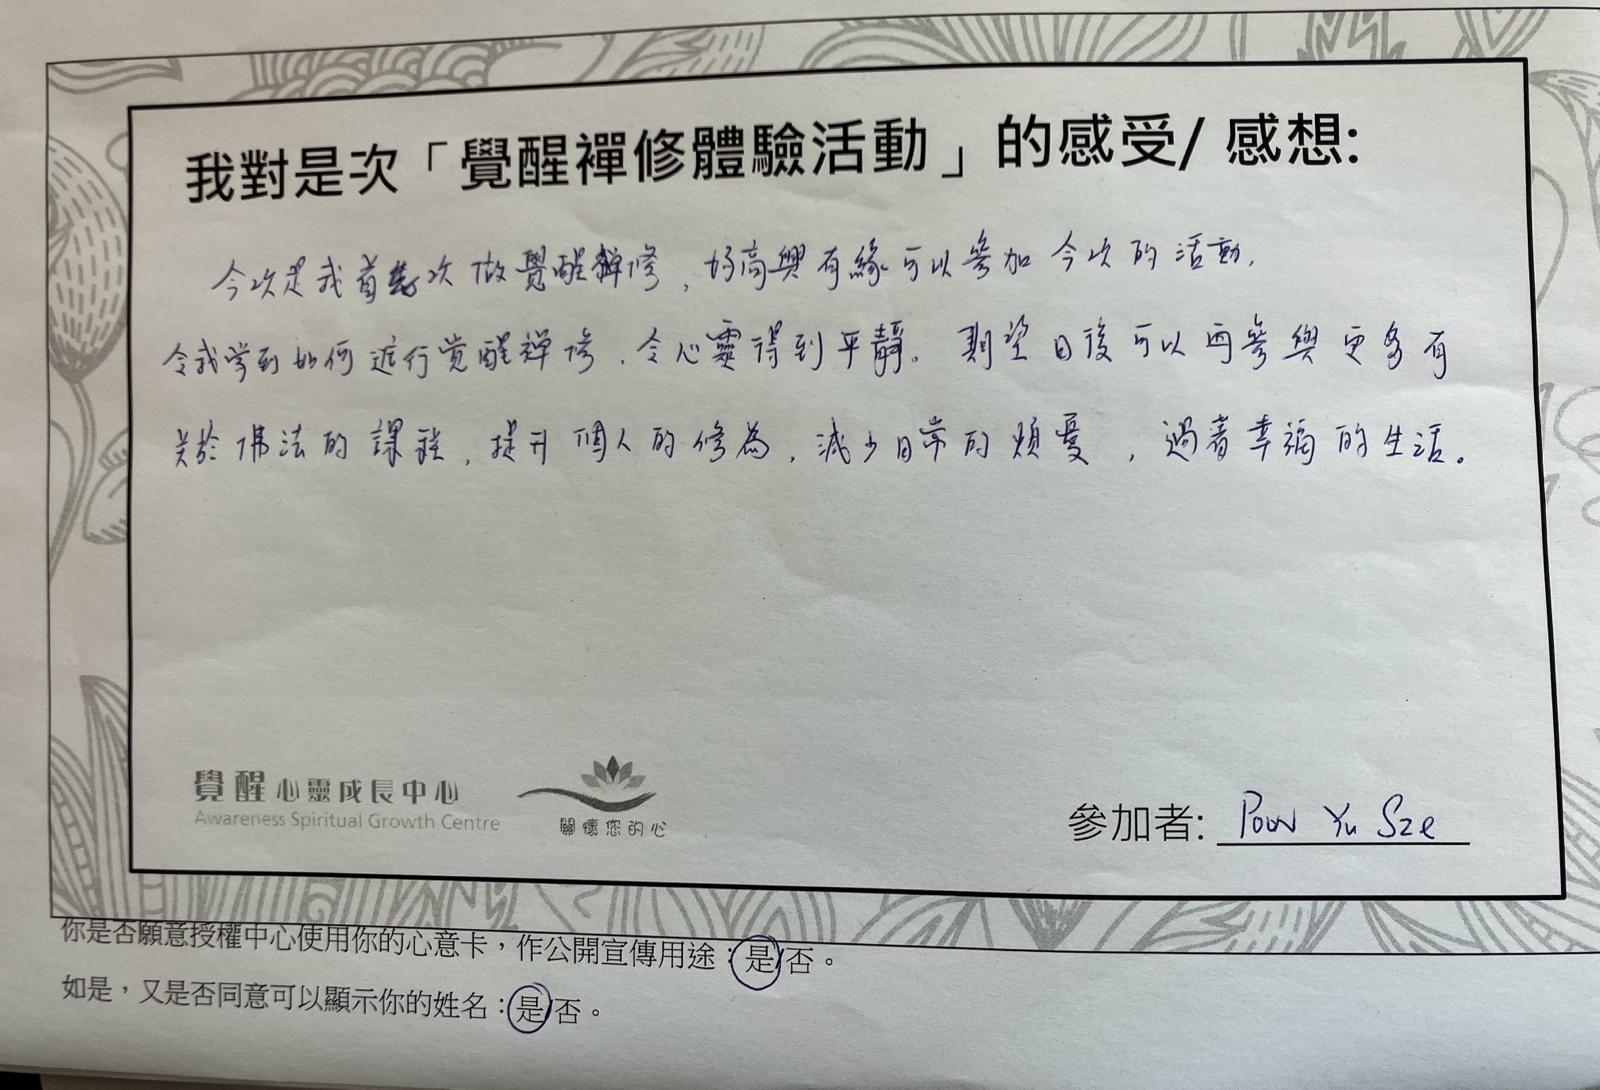 我對是次「覺醒禪修體驗活動」的感受/ 感想:
今次是我首次做覺醒禪修，好高興有緣可以參加今次的活動，
令我学到如何進行覚醒禅修，令心靈得到平靜。期望日後可以再參與更多有
关於佛法的課程，提升個人的修為，減少日常的煩憂，過著幸福的生活。
覺醒心靈成長中心
Awareness Spiritual Growth Centre
關懷您的心
參加者: Poon Yu Sze
你是否願意授權中心使用你的心意卡，作公開宣傳用途：是/否。
如是，又是否同意可以顯示你的姓名：是/否。